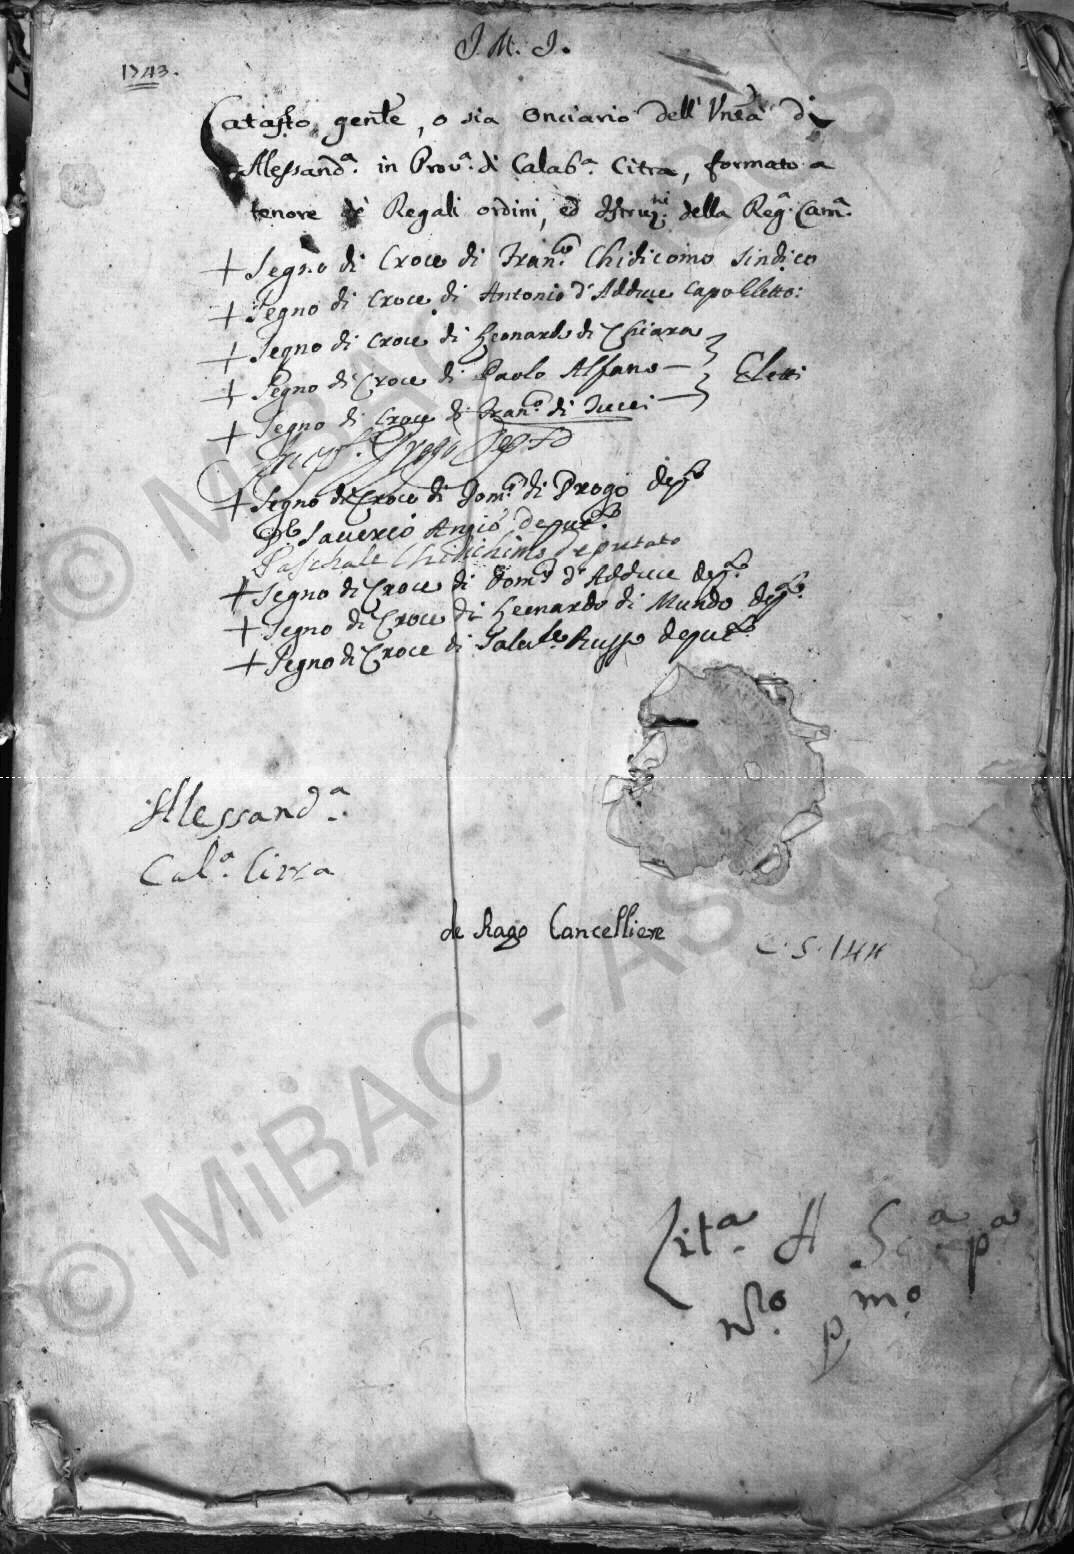 J. M. J.
1743.
Catasto gen̄le, o sia Onciario dell' Un̄tà di
Alessand.ª in Prov.ª di Calab.ª Citra, formato a
tenore de' Regali ordini, ed Istruz.ni della Reg.ª Cam.ª
+ Segno di Croce di Fran.co Chidicomo Sindico
+ Segno di Croce di Antonio d'Adduce Capo Eletto:
+ Segno di Croce di Leonardo di Chiara
+ Segno di Croce di Paolo Alfano — Eletti
+ Segno di Croce di Fran.co di Tucci —
+ Segno di Croce di Dom.co di Drogo dep.to
Saverio Angiò deput.to
Paschale Chidichimo deputato
+ Segno di Croce di Dom.co d'Adduce dep.to
+ Segno di Croce di Leonardo di Mundo dep.to
+ Segno di Croce di Russo deput.to
Alessand.ª
Cal.ª Citra
de Rago Cancelliere
C. S. 144
Lit.ª A Sc.ª p.ª
N.ro p.mo
© MiBAC - ASCS
© MiBAC - ASCS